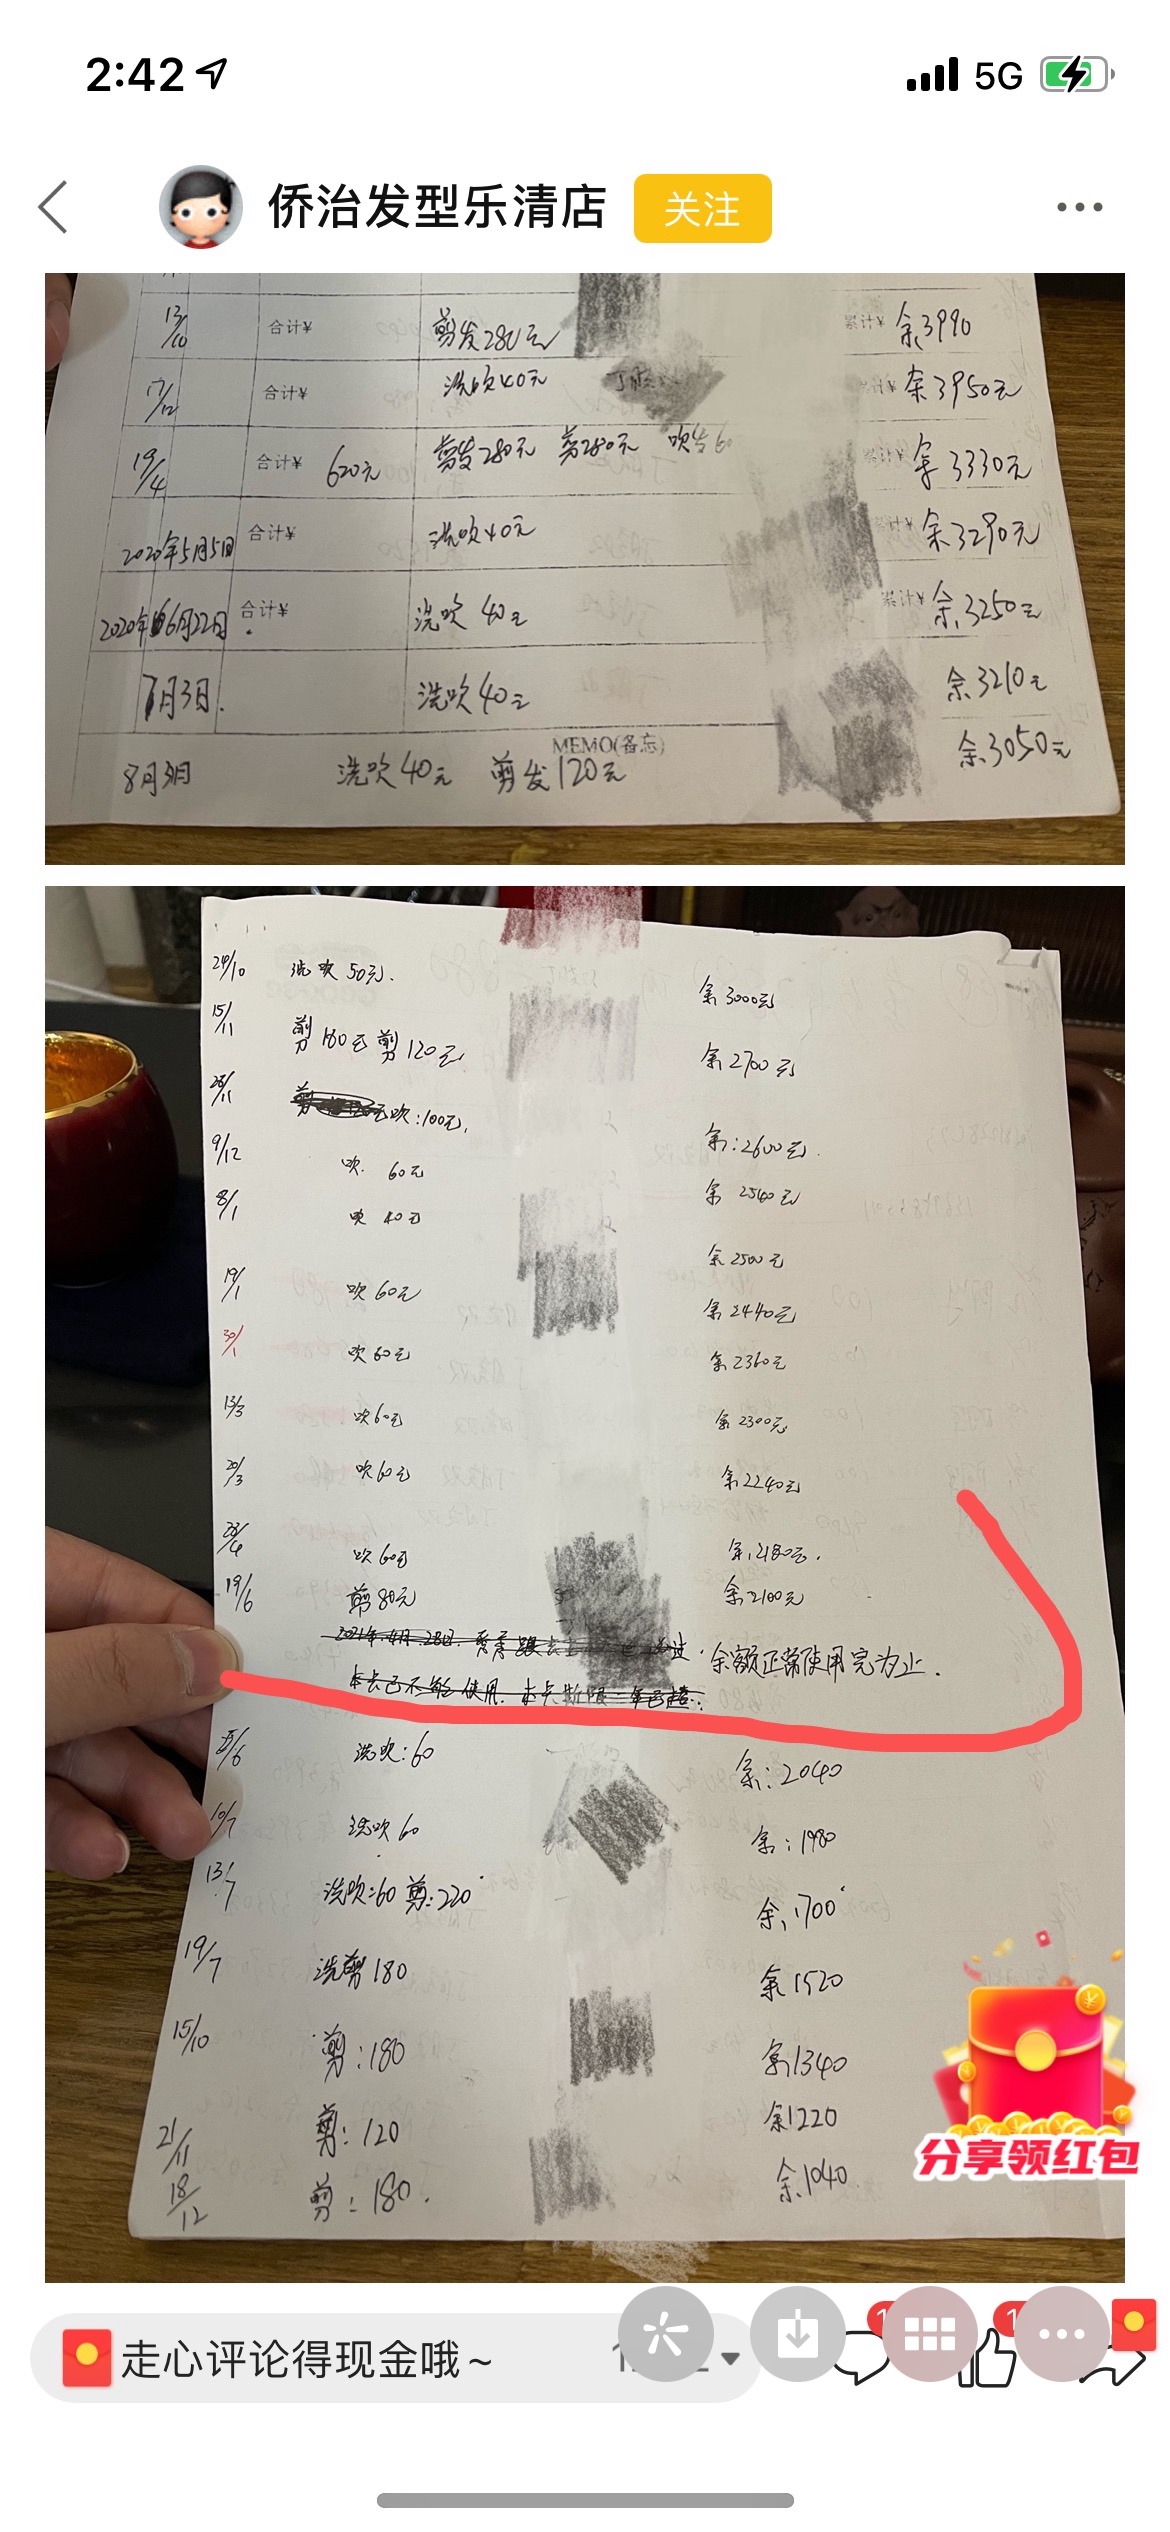 2:42 5G
侨治发型乐清店 关注
13/10 合计¥ 剪发280元 累计¥ 余3990
17/12 合计¥ 洗吹40元 余3950元
19/4 合计¥ 620元 剪发280元 剪280元 吹发60 余3330元
2020年5月5日 合计¥ 洗吹40元 余3290元
2020年6月22日 合计¥ 洗吹40元 累计¥ 余3250元
7月3日. 洗吹40元 余3210元
MEMO(备忘)
8月3日 洗吹40元 剪发120元 余3050元
24/10 洗吹50元. 余3000元
15/11 剪180元 剪120元. 余2700元
吹:100元. 余:2600元.
9/12 吹. 60元 余2540元
8/1 吹 40元 余2500元
19/1 吹60元 余2440元
30/1 吹60元 余2360元
13/3 吹60元 余2300元
20/3 吹60元 余2240元
吹60元 余2180元.
19/6 剪80元 余2100元
2021年4月28日. 余额正常使用完为止.
本卡已不能使用. 本卡期限一年已超.
洗吹:60 余:2040
10/7 洗吹60 余:1980
13/7 洗吹:60 剪:220 余1700
19/7 洗剪180 余1520
15/10 剪:180 余1340
21/11 剪:120 余1220
18/12 剪:180. 余1040
分享领红包
走心评论得现金哦~